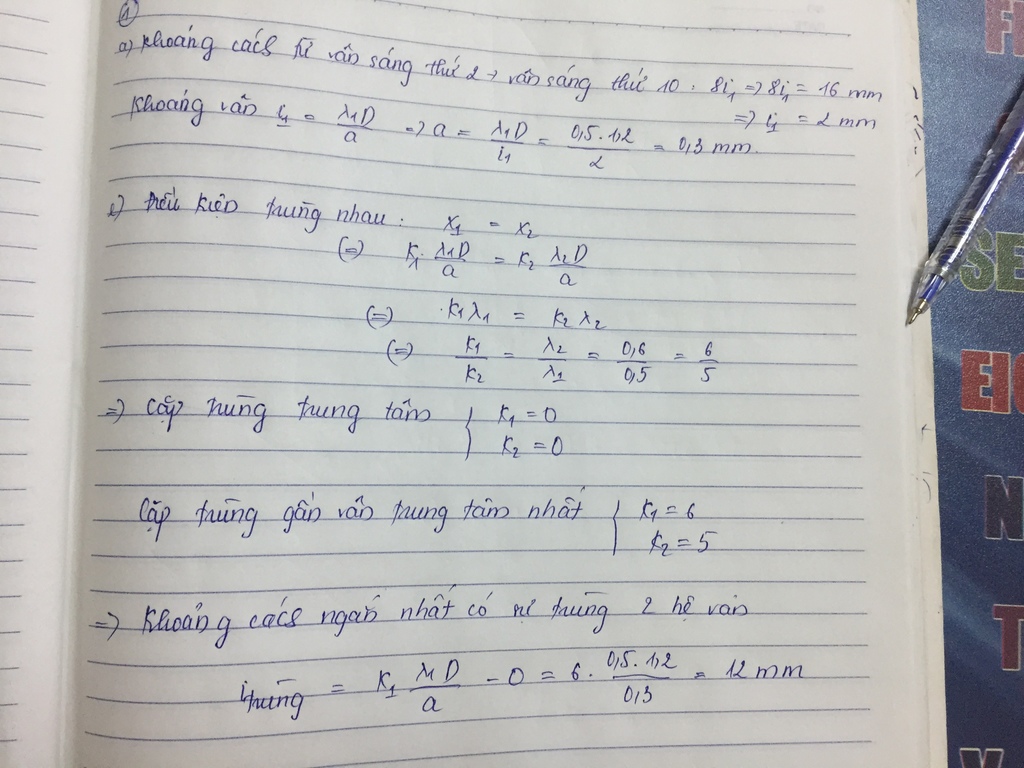 ①
a) Khoảng cách từ vân sáng thứ 2 → vân sáng thứ 10 : 8i₁ => 8i₁ = 16 mm
=> i₁ = 2 mm
Khoảng vân i₁ = λ₁D/a => a = λ₁D/i₁ = 0,5.1,2/2 = 0,3 mm.
Điều kiện trùng nhau : x₁ = x₂
(=) K₁. λ₁D/a = K₂ λ₂D/a
(=) K₁λ₁ = K₂λ₂
(=) K₁/K₂ = λ₂/λ₁ = 0,6/0,5 = 6/5
=) Cặp trùng trung tâm { K₁ = 0
K₂ = 0
Cặp trùng gần vân trung tâm nhất { K₁ = 6
K₂ = 5
=) Khoảng cách ngắn nhất có sự trùng 2 hệ vân
i trùng = K₁ λ₁D/a - 0 = 6. 0,5.1,2/0,3 = 12 mm
SE
N
T